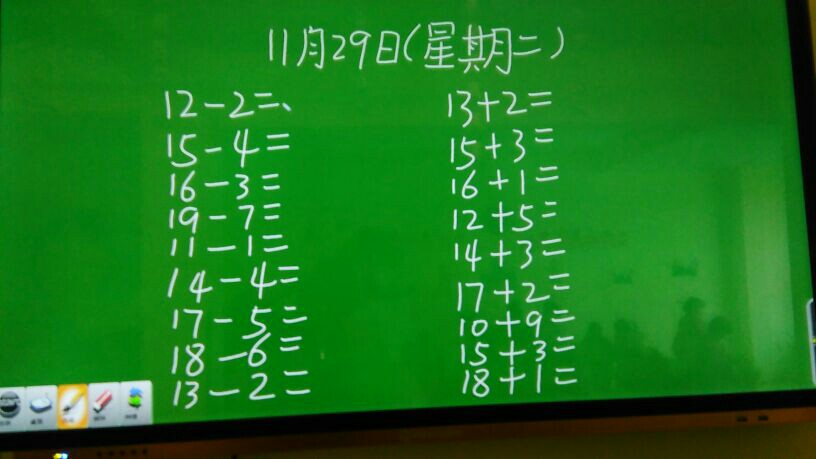 11月29日(星期二)
12-2=、 13+2=
15-4= 15+3=
16-3= 16+1=
19-7= 12+5=
11-1= 14+3=
14-4= 17+2=
17-5= 10+9=
18-6= 15+3=
13-2= 18+1=